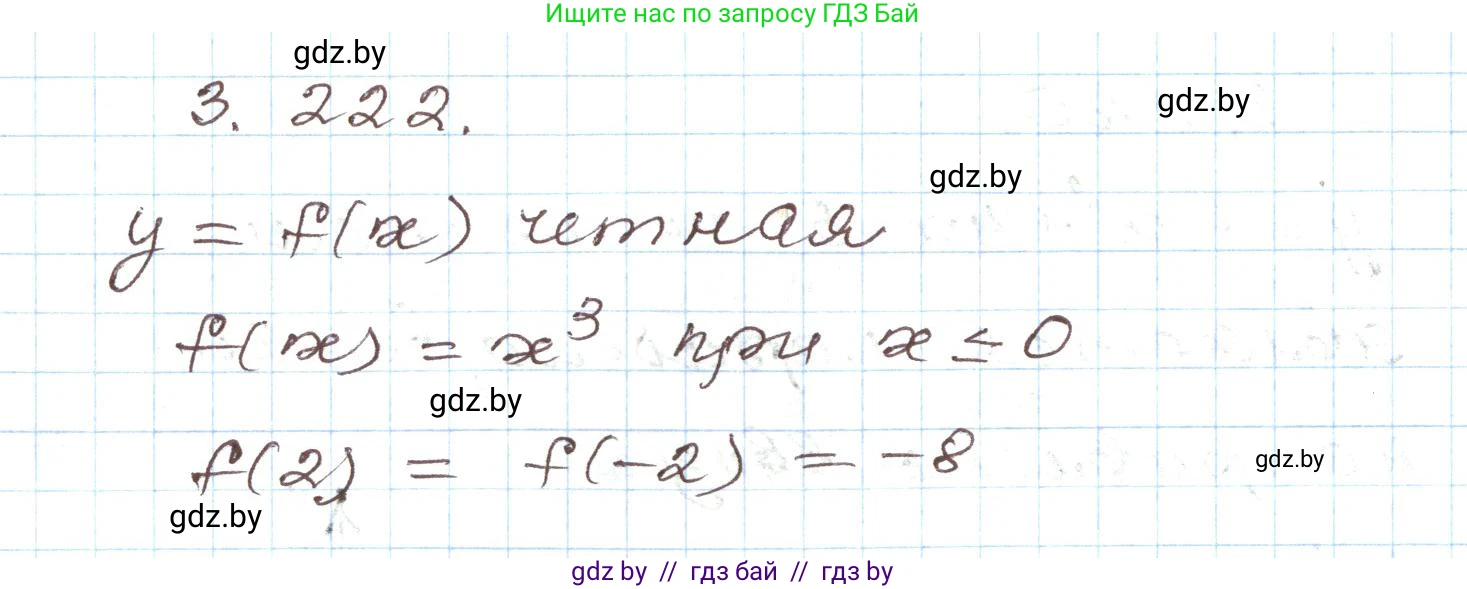 Ищите нас по запросу ГДЗ Бай
gdz.by
3. 222.
gdz.by
gdz.by
y = f(x) четная
f(x) = x³ при x ≤ 0
gdz.by
f(2) = f(-2) = -8
gdz.by
gdz.by
gdz by // гдз бай // гдз by